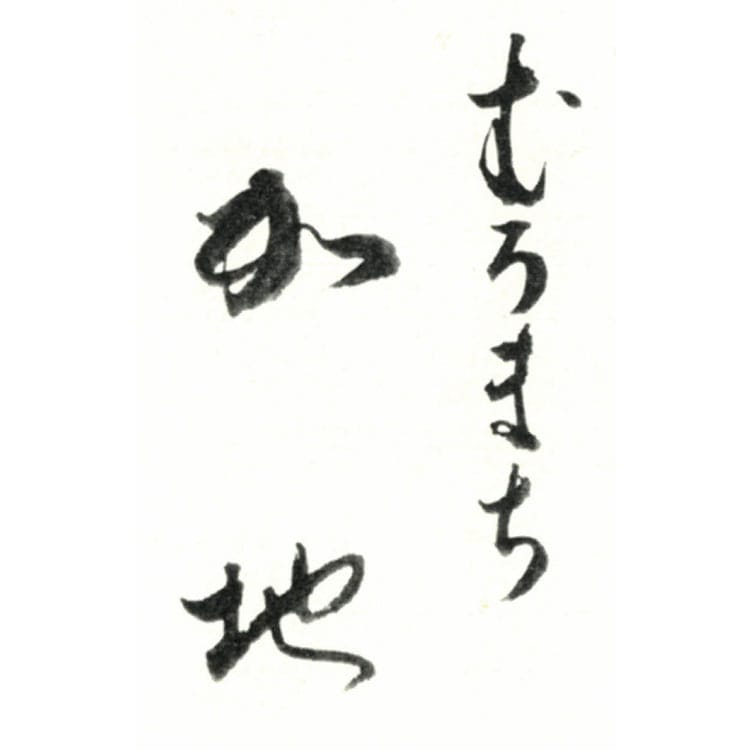 むろまち
加地